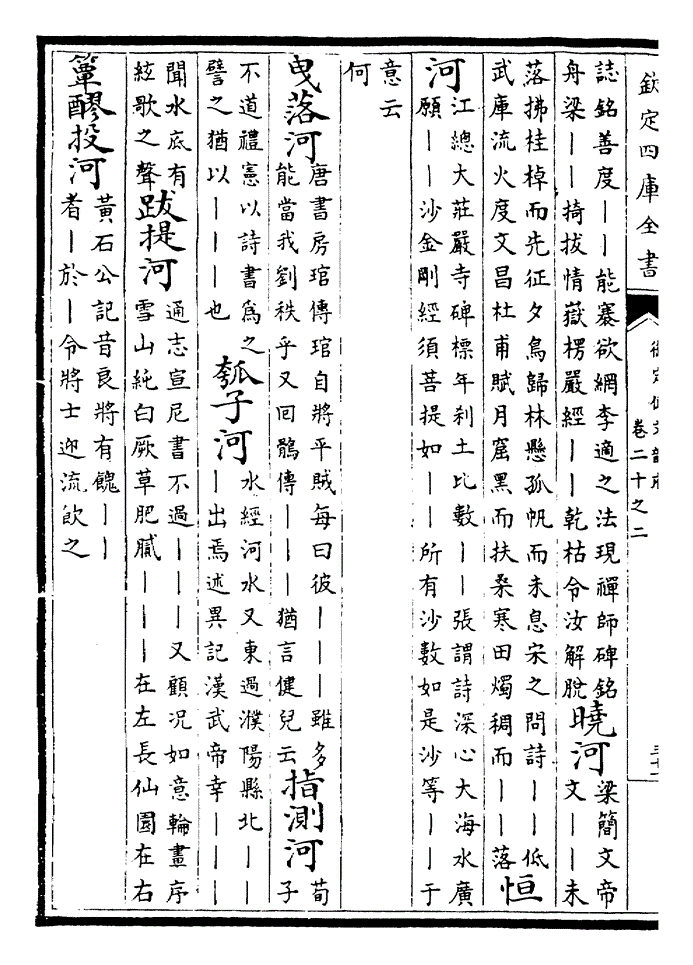 欽定四庫全書
御定佩文韻府
卷二十之二
誌銘善度｜｜能褰欲網李適之法現禪師碑銘
舟梁｜｜掎拔情嶽楞嚴經｜｜乾枯令汝解脫
曉河
梁簡文帝
文｜｜未
落拂桂棹而先征夕鳥歸林懸孤帆而未息宋之問詩｜｜低
武庫流火度文昌杜甫賦月窟黑而扶桑寒田燭稠而｜｜落
恒
河
江總大莊嚴寺碑標年刹土比數｜｜張謂詩深心大海水廣
願｜｜沙金剛經須菩提如｜｜所有沙數如是沙等｜｜于
意云
何
曳落河
唐書房琯傳琯自將平賊每曰彼｜｜｜雖多
能當我劉秩乎又回鶻傳｜｜｜猶言健兒云
指測河
荀
子
不道禮憲以詩書爲之
譬之猶以｜｜｜也
瓠子河
水經河水又東過濮陽縣北｜｜
｜出焉述異記漢武帝幸｜｜｜
聞水底有
絃歌之聲
跋提河
通志宣尼書不過｜｜｜又顧况如意輪畫序
雪山純白厥草肥膩｜｜｜在左長仙園在右
簞醪投河
黃石公記昔良將有餽｜｜
者｜於｜令將士迎流飲之